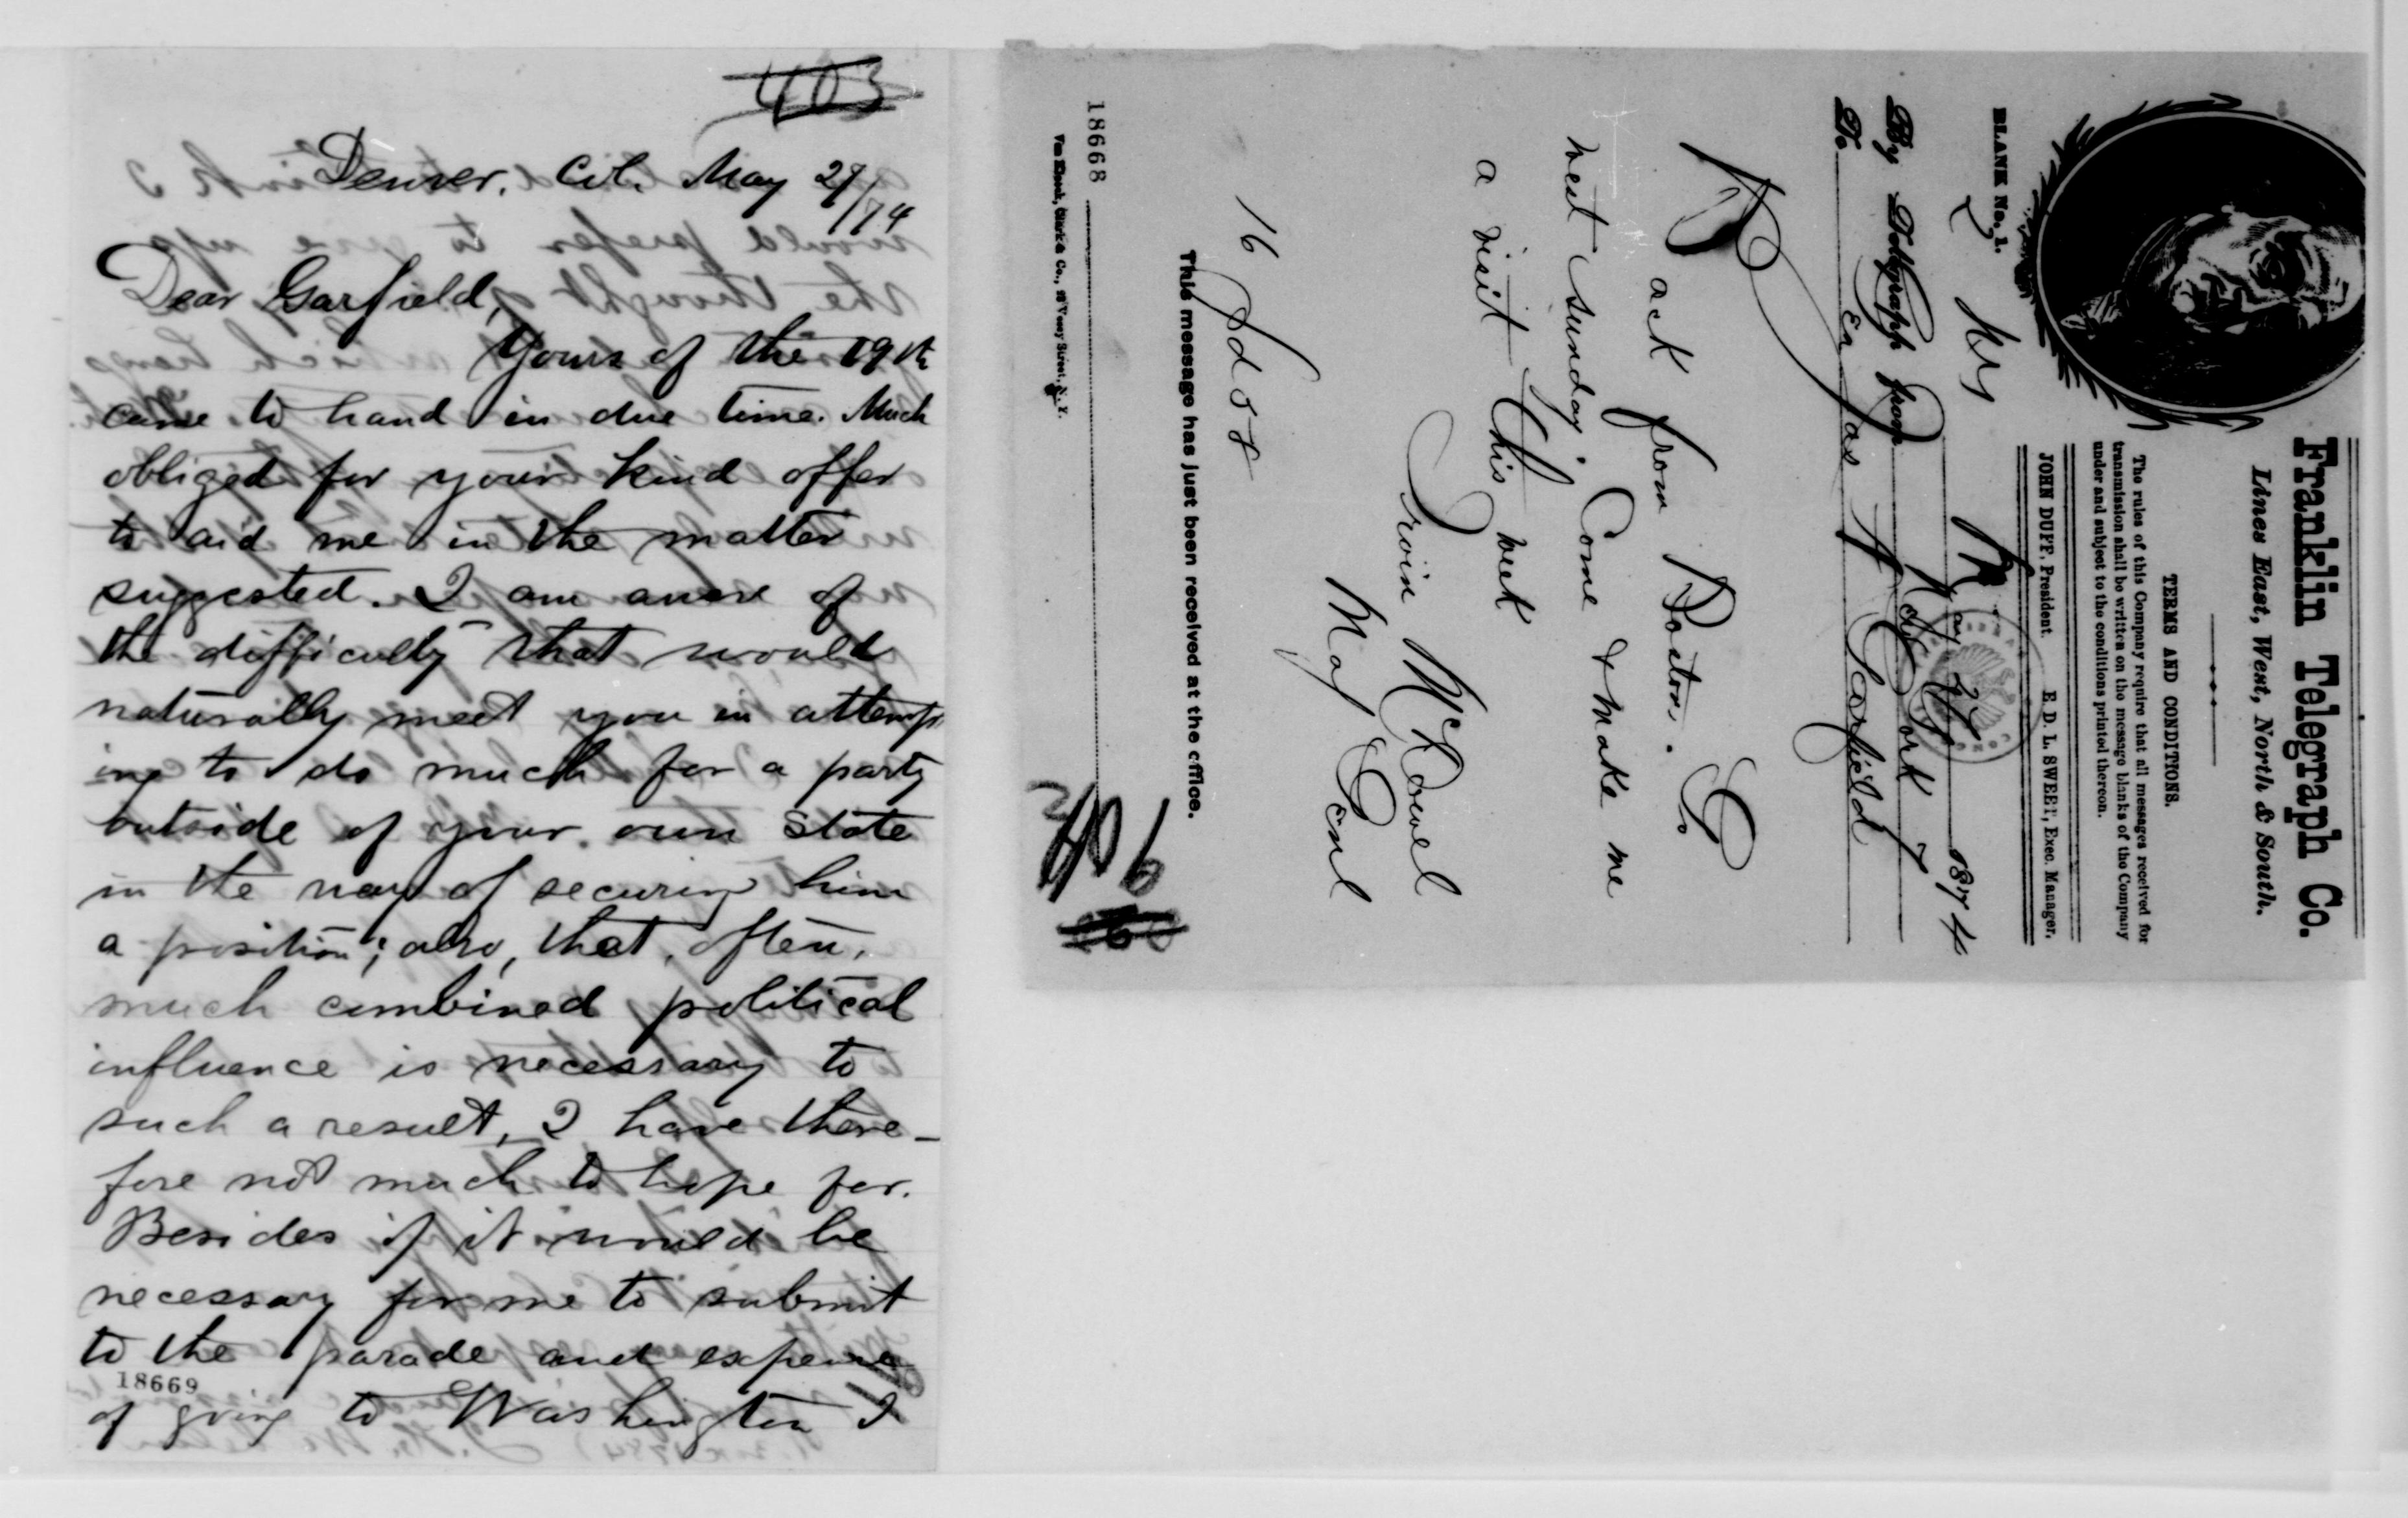 403
Denver. Col. May 27/74
Dear Garfield,
Yours of the 19th
came to hand in due time. Much
obliged for your kind offer
to aid me in the matter
suggested. I am aware of
the difficulty that would
naturally meet you in attempt
ing to do much for a party
outside of your own State
in the way of securing him
a position; also, that, often,
much combined political
influence is necessary to
such a result, I have there-
fore not much to hope for.
Besides if it would be
necessary for me to submit
to the parade and expense
18669
of going to Washington I
Franklin Telegraph Co.
Lines East, West, North & South.
TERMS AND CONDITIONS.
The rules of this Company require that all messages received for
transmission shall be written on the message blanks of the Company
under and subject to the conditions printed thereon.
JOHN DUFF, President. E. D. L. SWEET, Exec. Manager.
BLANK No. 1.
May 27 1874
By Telegraph from New York 7
To Gen Jas A Garfield
Back from Boston. Go
west Sunday. Come & make me
a visit this week
Irvin McDowel
Maj Genl
16
This message has just been received at the office.
18668
Van Kleeck, Clark & Co., Vesey Street, N. Y.
406